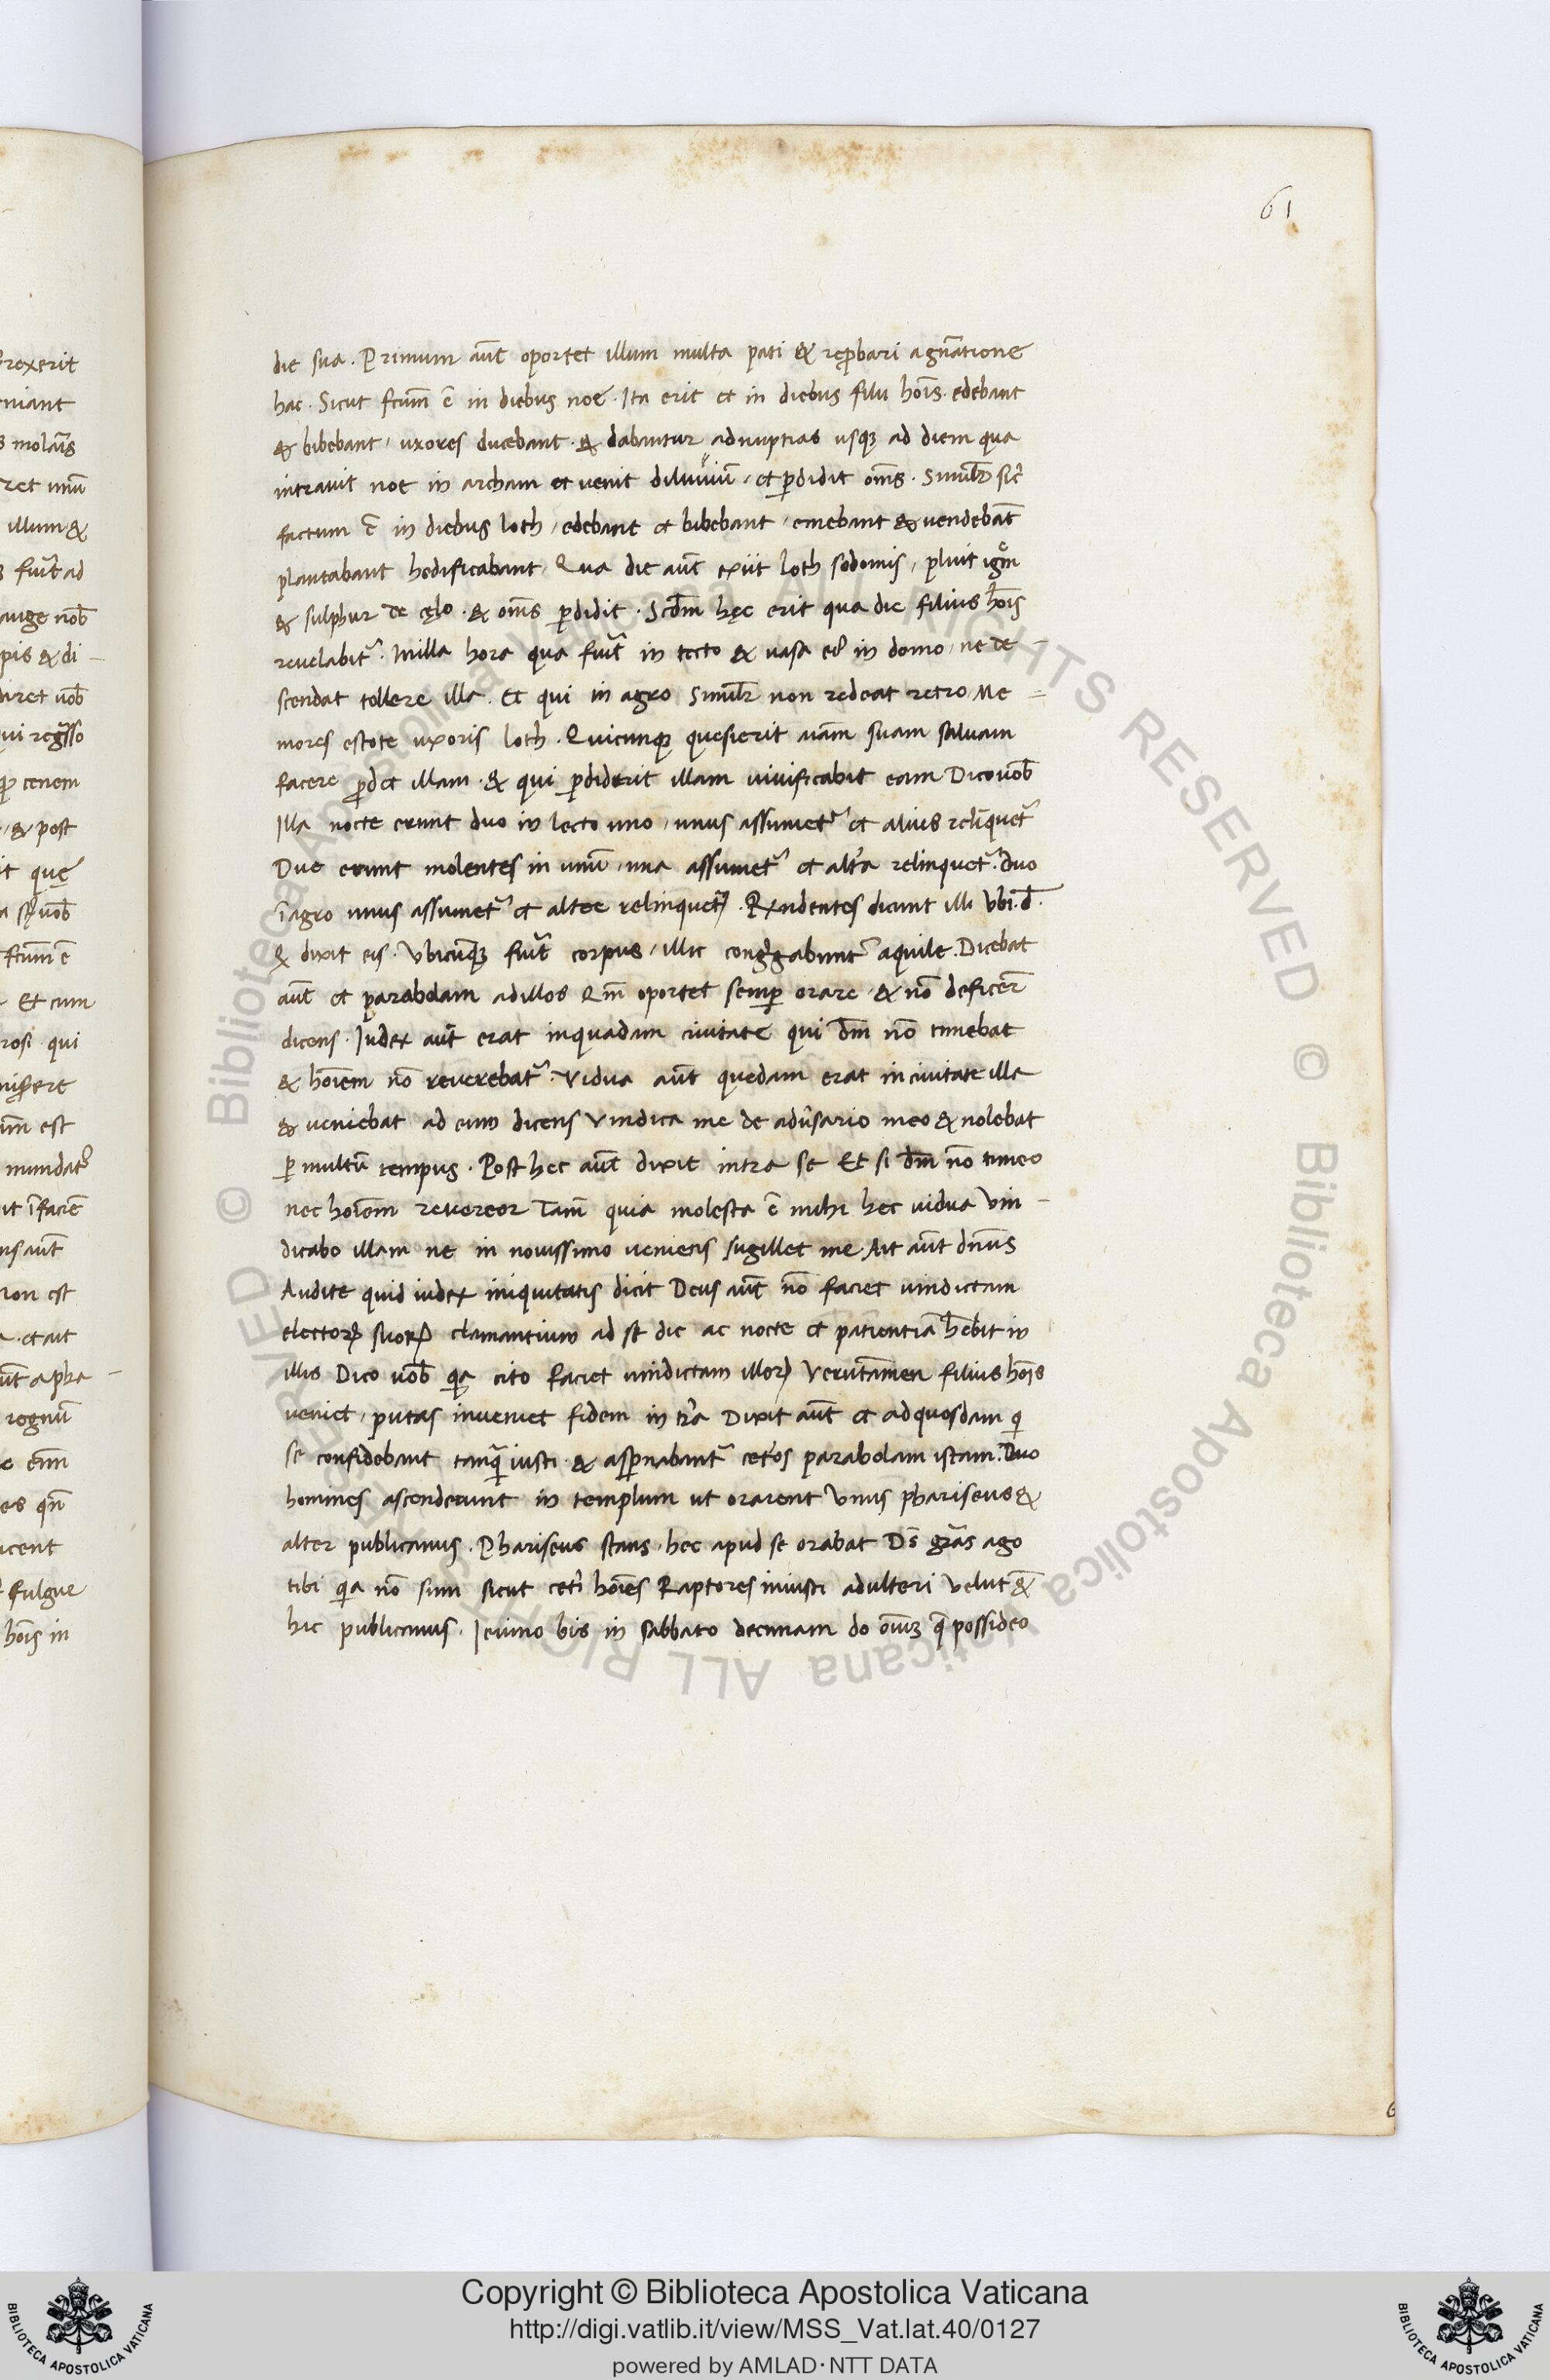 61
die sua. Primum aut̄ oportet illum multa pati & rep̄bari a gn̄atione
hac. Sicut fc̄um ē in diebus noe. Ita erit et in diebus filii hoīs. edebant
& bibebant, uxores ducebant. & dabantur ad nuptias usq; ad diem qua
intravit noe in archam et venit diluvium, et ꝑdidit om̄s. Simil̄r sic̄
factum ē in diebus loth, edebant et bibebant, emebant & vendebāt
plantabant hedificabant. Qua die aut̄ exiit loth sodomis, pluit igm̄
& sulphur de cęlo. & om̄s ꝑdidit. Scd̄m hęc erit qua die filius hoīs
revelabit᷑. In illa hora qua fuit̄ in tecto & vasa ei᷑ in domo, ne de-
scendat tollere illa. Et qui in agro Simil̄r non redeat retro. Me=
mores estote uxoris loth. Quicunq; quesierit aīam suam salvam
facere ꝑdet illam. & qui ꝑdiderit illam vivificabit eam Dico vob̄
Illa nocte erunt duo in lecto uno, unus assumet᷑ et alius relīquet᷑
Due erunt molentes in unū, una assumet᷑ et alt᷑a relinquet᷑. duo
ī agro unus assumet᷑ et alter relinquet᷑. Rn̄dentes dicunt illi Ubi. d̄.
& dixit eis. Ubicūq; fuit̄ corpus, illic cong᷑gabunt᷑ aquile. Dicebat
aut̄ et parabolam ad illos Qm̄ oportet semꝑ orare & nō deficer̄
dicens. Iudex aut̄ erat in quadam civitate qui dm̄ nō timebat
& hoīem nō reverebat᷑. Vidua aut̄ quedam erat in civitate illa
& veniebat ad eum dicens Vindica me de adv᷑sario meo & nolebat
ꝑ multū tempus. Post hec aut̄ dixit intra se Et si dm̄ nō timeo
nec hoīem revereor Tam̄ quia molesta ē mihi hec vidua Vin-
dicabo illam ne in novissimo veniens sugillet me. Ait aut̄ dn̄us
Audite quid iudex iniquitatis dicit Deus aut̄ nō faciet vindictam
electoꝝ suoꝝ clamantium ad se die ac nocte et patientiā hēbit in
illis Dico vob̄ qa cito faciet vindictam illoꝝ Verūtamen filius hoīs
veniet, putas inveniet fidem in tr᷑a Dixit aut̄ et ad quosdam qi
se confidebant tanq̄ iusti & asꝑnabant᷑ cet᷑os parabolam istam. Duo
homines ascenderunt in templum ut orarent Unus phariseus &
alter publicanus. Phariseus stans, hec apud se orabat Ds̄ grās ago
tibi qa nō sum sicut cet᷑i hoīes Raptores iniusti adulteri velut &̄
hic publicanus. Ieiuno bis in sabbato decimam do oīum q̄ possideo
Copyright © Biblioteca Apostolica Vaticana
http://digi.vatlib.it/view/MSS_Vat.lat.40/0127
powered by AMLAD·NTT DATA